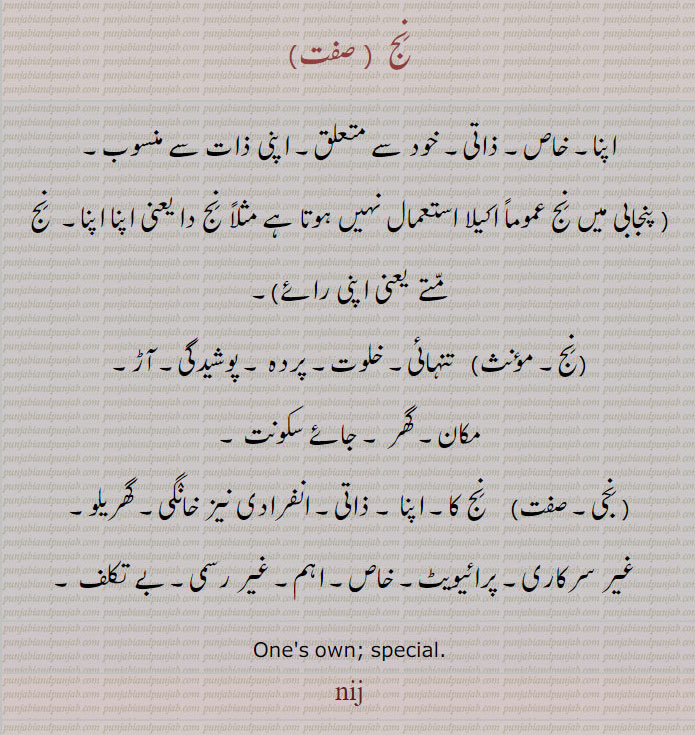 نِج ( صفت)
اپنا۔ خاص ۔ ذاتی۔ خود سے متعلق۔ اپنی ذات سے منسوب ۔
( پنجابی میں نِج عموماً اکیلا استعمال نہیں ہوتا ہے مثلاً نِج دا یعنی اپنا اپنا۔ نِج
مّتے یعنی اپنی رائے) ۔
(نِج ۔ مؤنث) تنہائی۔ خلوت ۔ پردہ ۔ پوشیدگی۔ آڑ ۔
مکان۔ گھر ۔ جائے سکونت ۔
( نِجی ۔ صفت) نِج کا۔ اپنا ۔ ذاتی۔ انفرادی نیز خانگی۔ گھریلو ۔
غیر سرکاری۔ پرائیویٹ ۔ خاص ۔ اہم۔ غیر رسمی۔ بے تکلف ۔
One's own; special.
nij